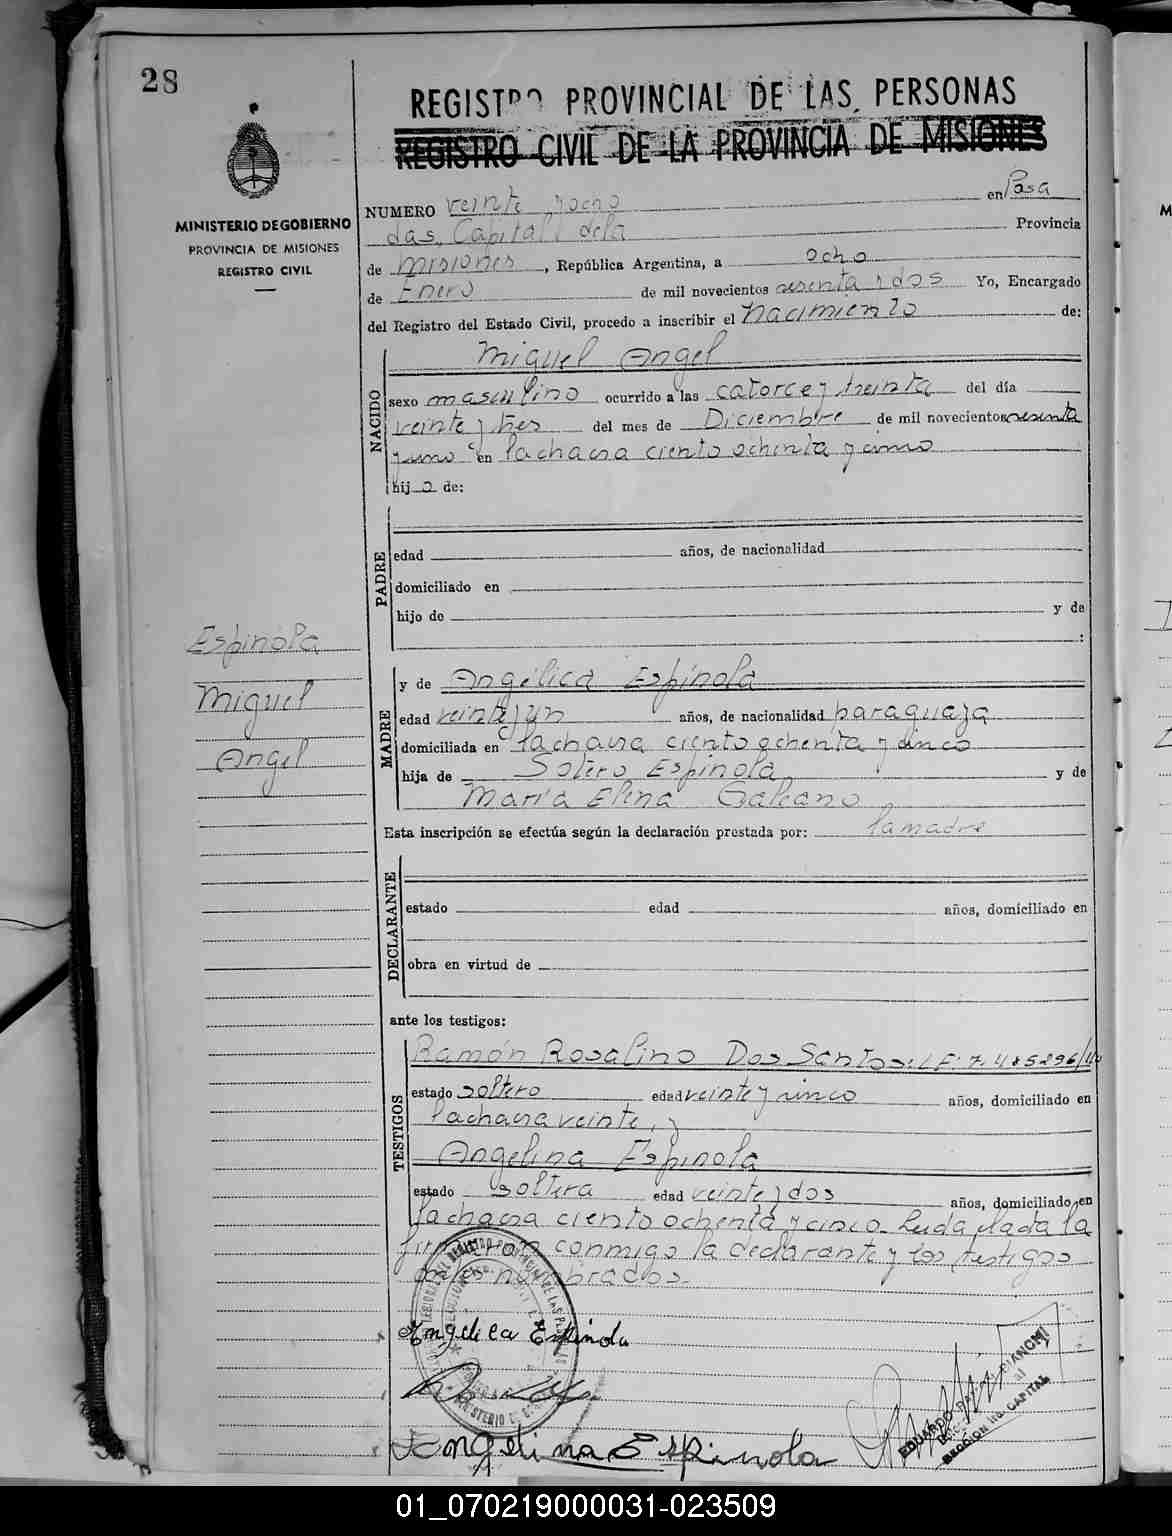 28
REGISTRO PROVINCIAL DE LAS PERSONAS
REGISTRO CIVIL DE LA PROVINCIA DE MISIONES
MINISTERIO DE GOBIERNO
PROVINCIA DE MISIONES
REGISTRO CIVIL
NUMERO veinte y ocho en Posa
das, Capital dela Provincia
de Misiones, República Argentina, a ocho
de Enero de mil novecientos sesenta y dos Yo, Encargado
del Registro del Estado Civil, procedo a inscribir el nacimiento de:
NACIDO
Miguel Angel
sexo masculino ocurrido a las catorce y treinta del día
veinte y tres del mes de Diciembre de mil novecientos sesenta
y uno en la chacra ciento ochenta y cinco
hijo de:
PADRE
edad años, de nacionalidad
domiciliado en
hijo de y de
:
Espinola
Miguel
Angel
MADRE
y de Angélica Espínola
edad veinte y un años, de nacionalidad paraguaya
domiciliada en la chacra ciento ochenta y cinco
hija de Sotero Espinola y de
María Elena Galeano
Esta inscripción se efectúa según la declaración prestada por: la madre
DECLARANTE
estado edad años, domiciliado en
obra en virtud de
ante los testigos:
TESTIGOS
Ramón Rosalino Dos Santos: L.E. 7.485296
estado soltero edad veinte y cinco años, domiciliado en
la chacra veinte, y
Angelina Espinola
estado soltera edad veinte y dos años, domiciliado en
la chacra ciento ochenta y cinco. Leida el acta la
conmigo la declarante y los testigos
Angelica Espinola
Angelina Espinola
EDUARDO BIANCHI
SECCION CAPITAL
01_070219000031-023509